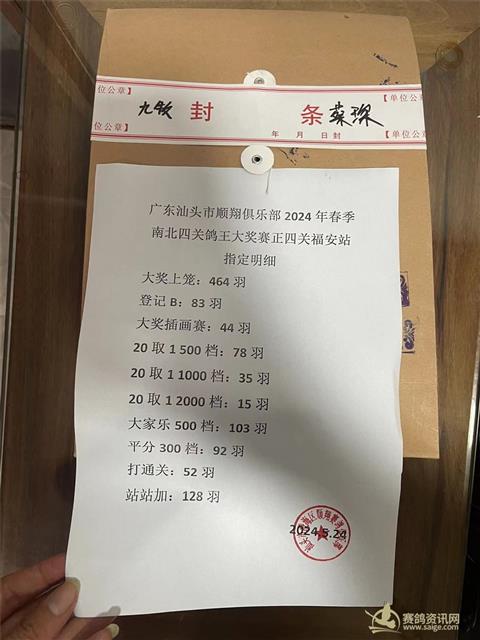 位公章】
【单位公章】
九牧 封 条 蔡琛
位公章】
年 月 日封
【单位公章】
广东汕头市顺翔俱乐部 2024 年春季
南北四关鸽王大奖赛正四关福安站
指定明细
大奖上笼：464 羽
登记 B：83 羽
大奖插画赛：44 羽
20 取 1 500 档：78 羽
20 取 1 1000 档：35 羽
20 取 1 2000 档：15 羽
大家乐 500 档：103 羽
平分 300 档：92 羽
打通关：52 羽
站站加：128 羽
2024.5.24
赛鸽资讯网
www.saige.com